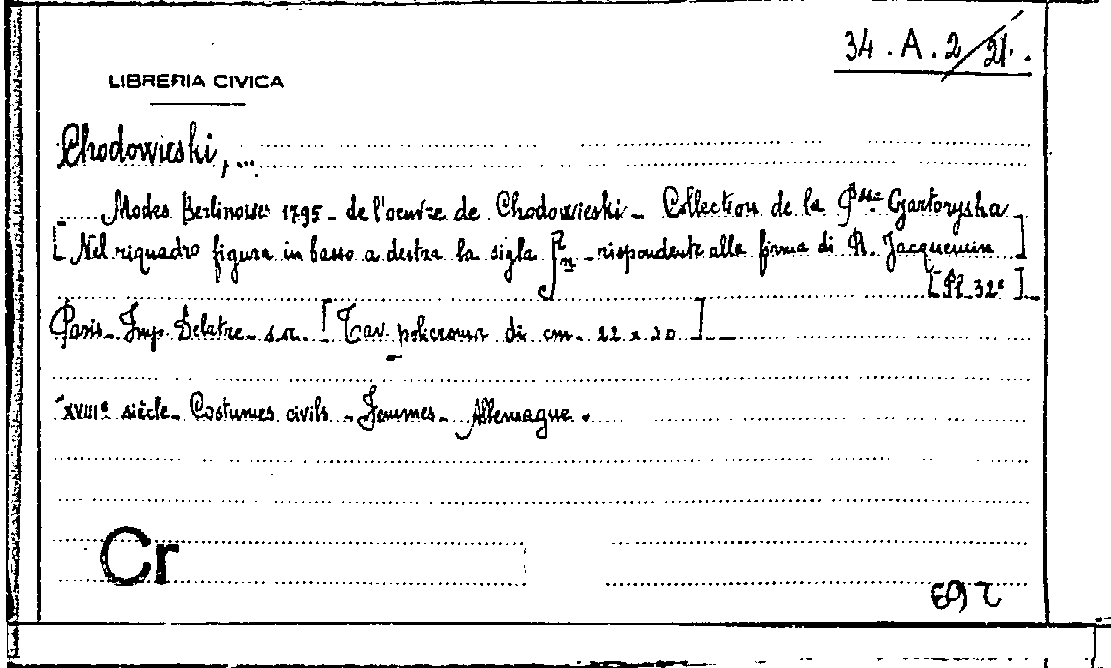 34 . A . 2/21 .
LIBRERIA CIVICA
Chodowieski, ...
Modes Berlinoises 1795 - de l'oeuvre de Chodowieski - Collection de la Psse Czartoryska
[Nel riquadro figura in basso a destra la sigla - rispondente alla firma di R. Jacquemin]
[Pl. 32e]
Paris - Imp. Delatre - s.a. [Tav. policroma di cm. 22 x 20]
XVIIIe siècle - Costumes civils - Femmes - Allemagne.
Cr